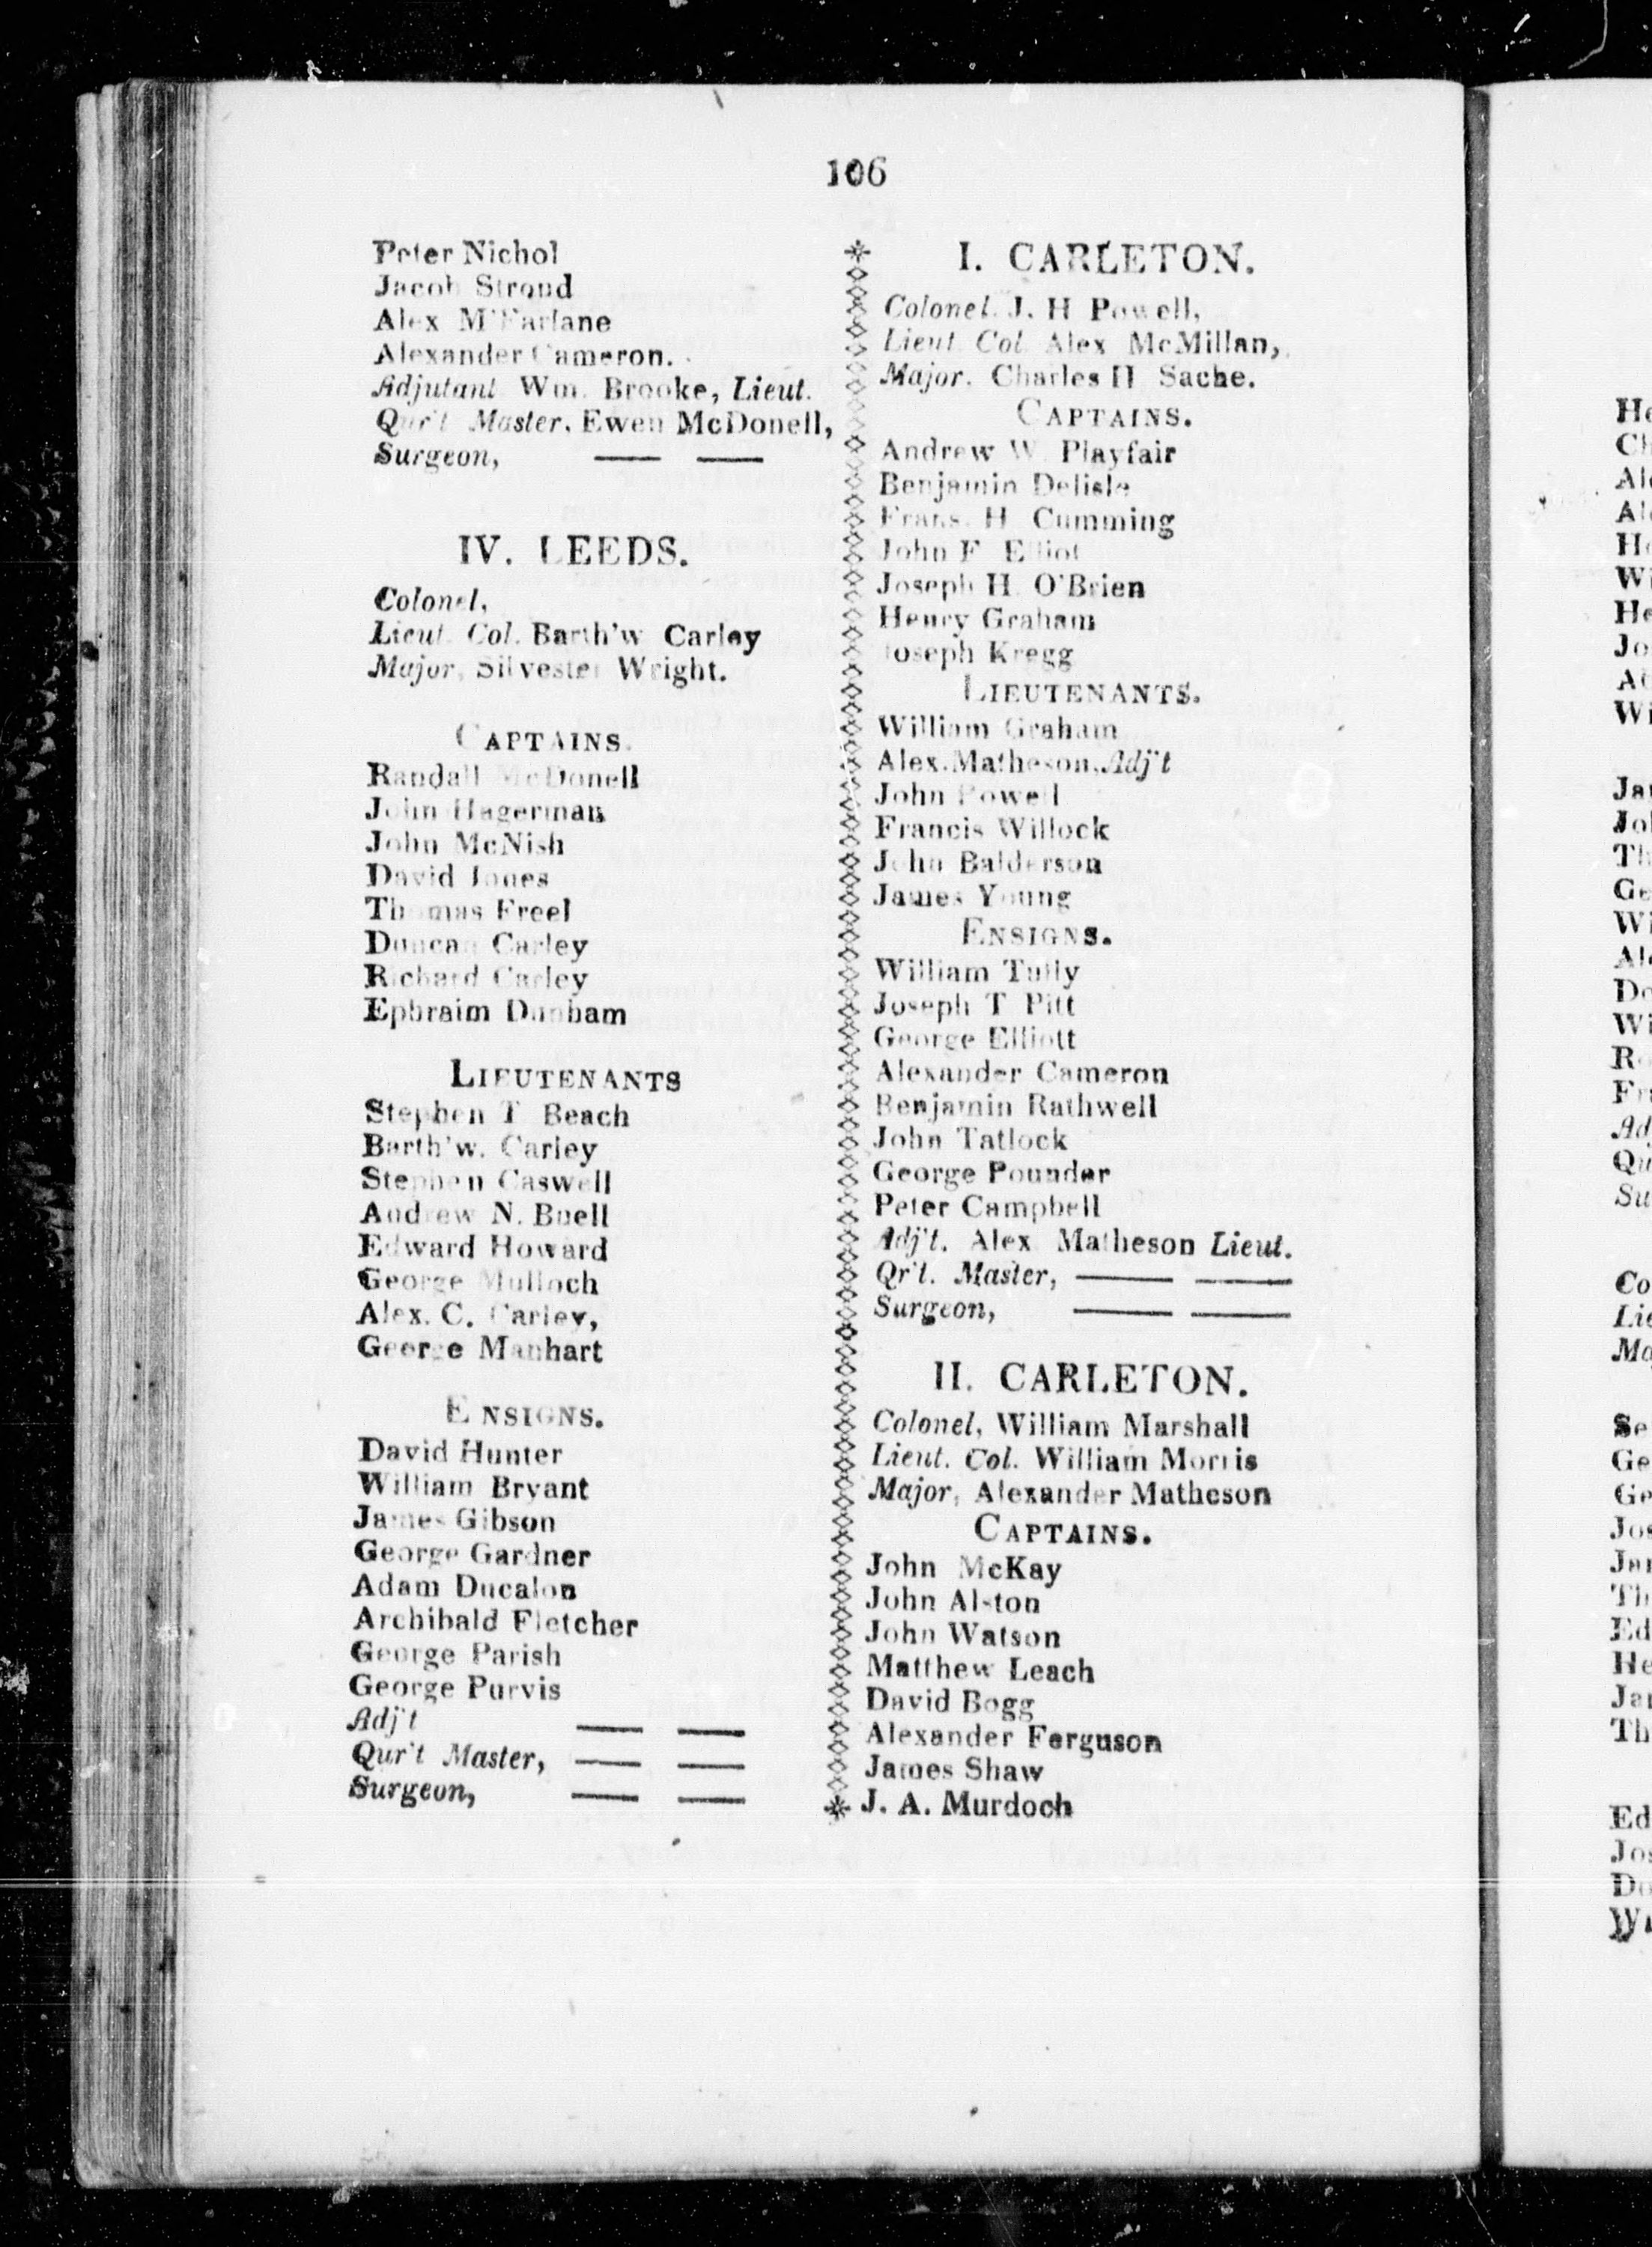 106
Peter Nichol
Jacob Stroud
Alex M'Farlane
Alexander Cameron.
Adjutant Wm. Brooke, Lieut.
Qur't Master, Ewen McDonell,
Surgeon, —— ——
IV. LEEDS.
Colonel,
Lieut. Col. Barth'w Carley
Major, Silvester Wright.
CAPTAINS.
Randall McDonell
John Hagerman
John McNish
David Jones
Thomas Freel
Duncan Carley
Richard Carley
Ephraim Dunham
LIEUTENANTS
Stephen T Beach
Barth'w. Carley
Stephen Caswell
Andrew N. Buell
Edward Howard
George Mulloch
Alex. C. Carley,
George Manhart
ENSIGNS.
David Hunter
William Bryant
James Gibson
George Gardner
Adam Ducalon
Archibald Fletcher
George Parish
George Purvis
Adj't —— ——
Qur't Master, —— ——
Surgeon, —— ——
I. CARLETON.
Colonel. J. H Powell,
Lieut. Col. Alex McMillan,
Major. Charles H Sache.
CAPTAINS.
Andrew W. Playfair
Benjamin Delisle
Frans. H Cumming
John F Elliot
Joseph H. O'Brien
Henry Graham
Joseph Kregg
LIEUTENANTS.
William Graham
Alex. Matheson, Adj't
John Powell
Francis Willock
John Balderson
James Young
ENSIGNS.
William Tully
Joseph T Pitt
George Elliott
Alexander Cameron
Benjamin Rathwell
John Tatlock
George Pounder
Peter Campbell
Adj't. Alex Matheson Lieut.
Qr't. Master, —— ——
Surgeon, —— ——
II. CARLETON.
Colonel, William Marshall
Lieut. Col. William Morris
Major, Alexander Matheson
CAPTAINS.
John McKay
John Alston
John Watson
Matthew Leach
David Bogg
Alexander Ferguson
James Shaw
J. A. Murdoch